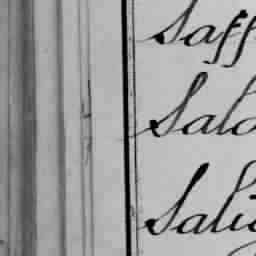 Saff
Salo
Salio